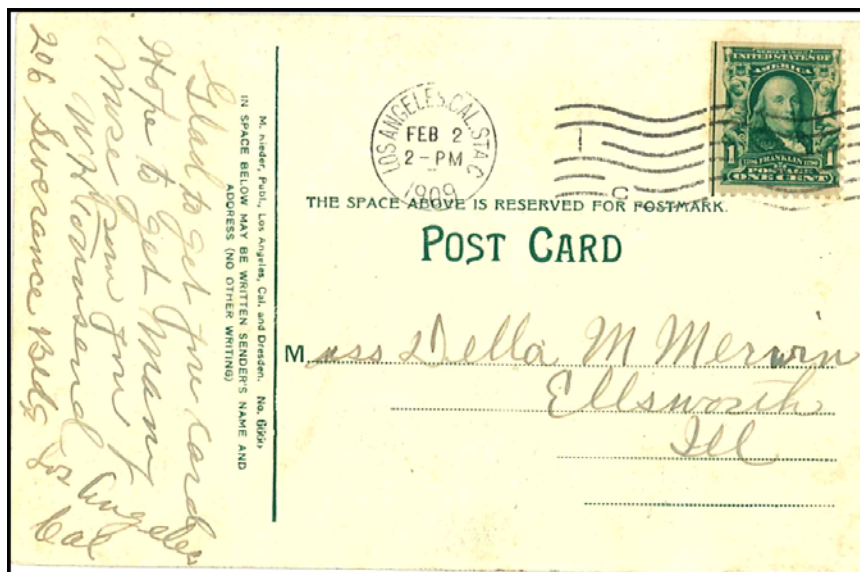 Glad to get you card
Hope to get many
More from you
W H Townsend
206 Severance Bldg Los Angeles
Cal
M. Rieder, Publ., Los Angeles, Cal. and Dresden. No.
IN SPACE BELOW MAY BE WRITTEN SENDER'S NAME AND
ADDRESS (NO OTHER WRITING)
LOS ANGELES, CAL. STA. C
FEB 2
2 - PM
1909
C
SERIES 1902
UNITED STATES OF
AMERICA
1 1706 FRANKLIN 1790 1
POSTAGE
ONE CENT
THE SPACE ABOVE IS RESERVED FOR POSTMARK.
POST CARD
Miss Della M Merwin
Ellsworth
Ill